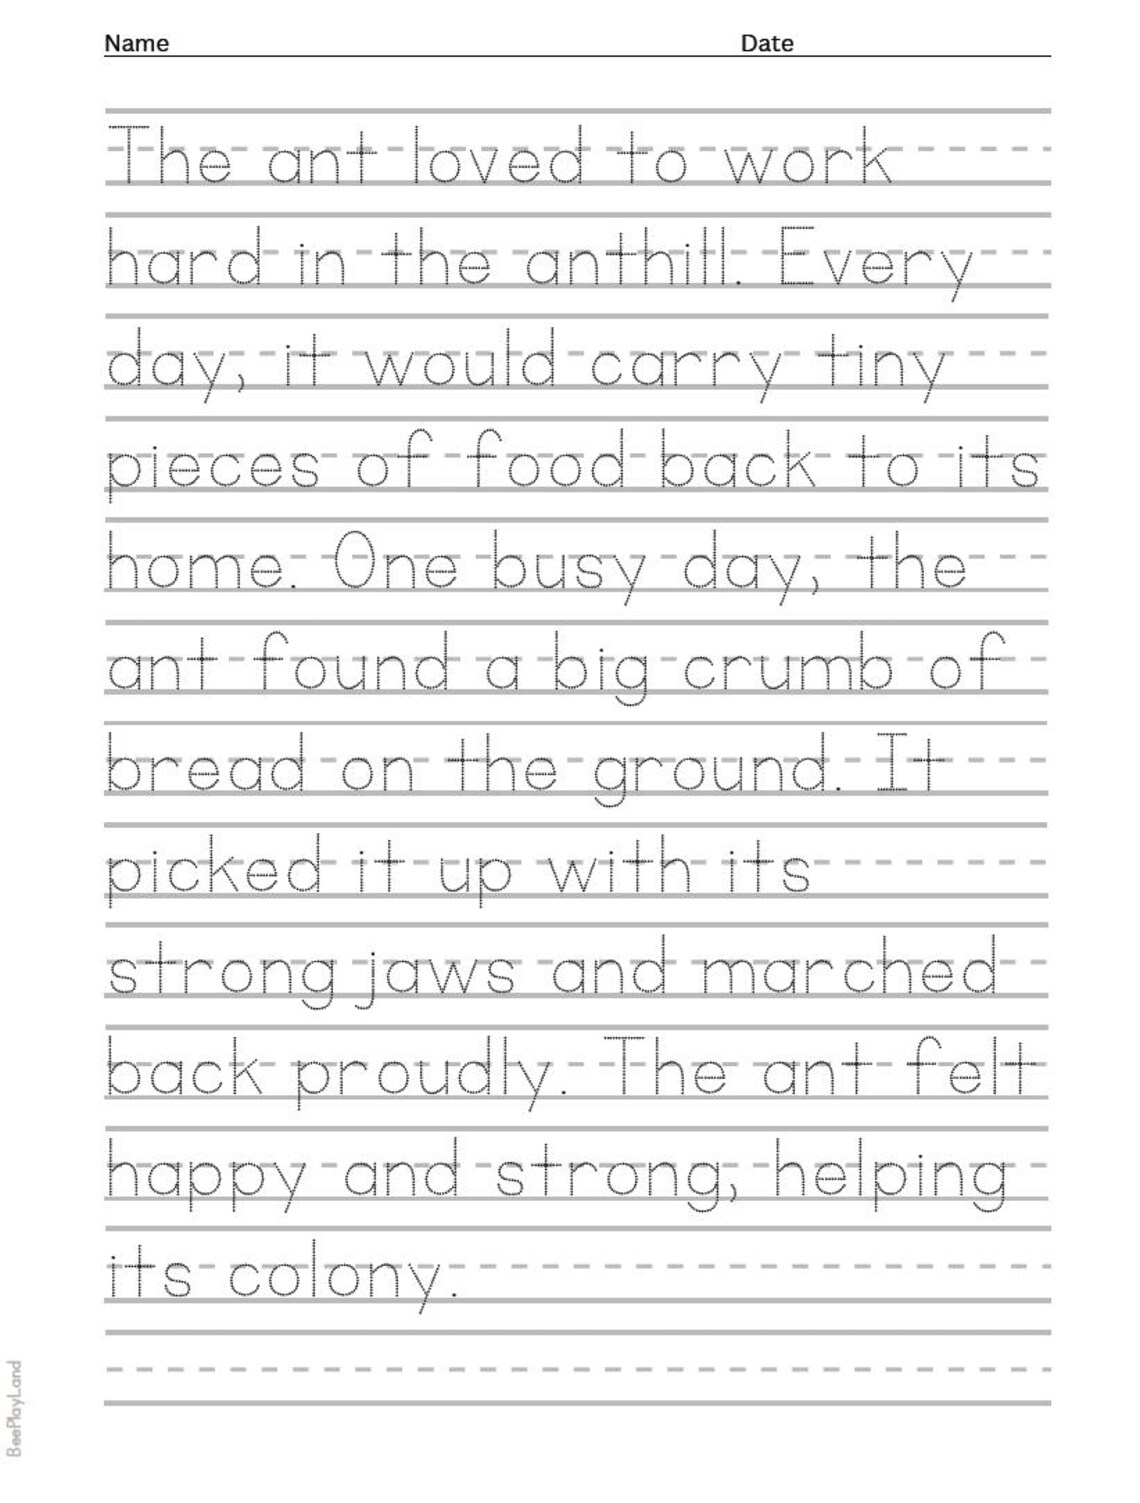 Name Date
The ant loved to work
hard in the anthill. Every
day, it would carry tiny
pieces of food back to its
home. One busy day, the
ant found a big crumb of
bread on the ground. It
picked it up with its
strong jaws and marched
back proudly. The ant felt
happy and strong, helping
its colony.
BeePlayLand